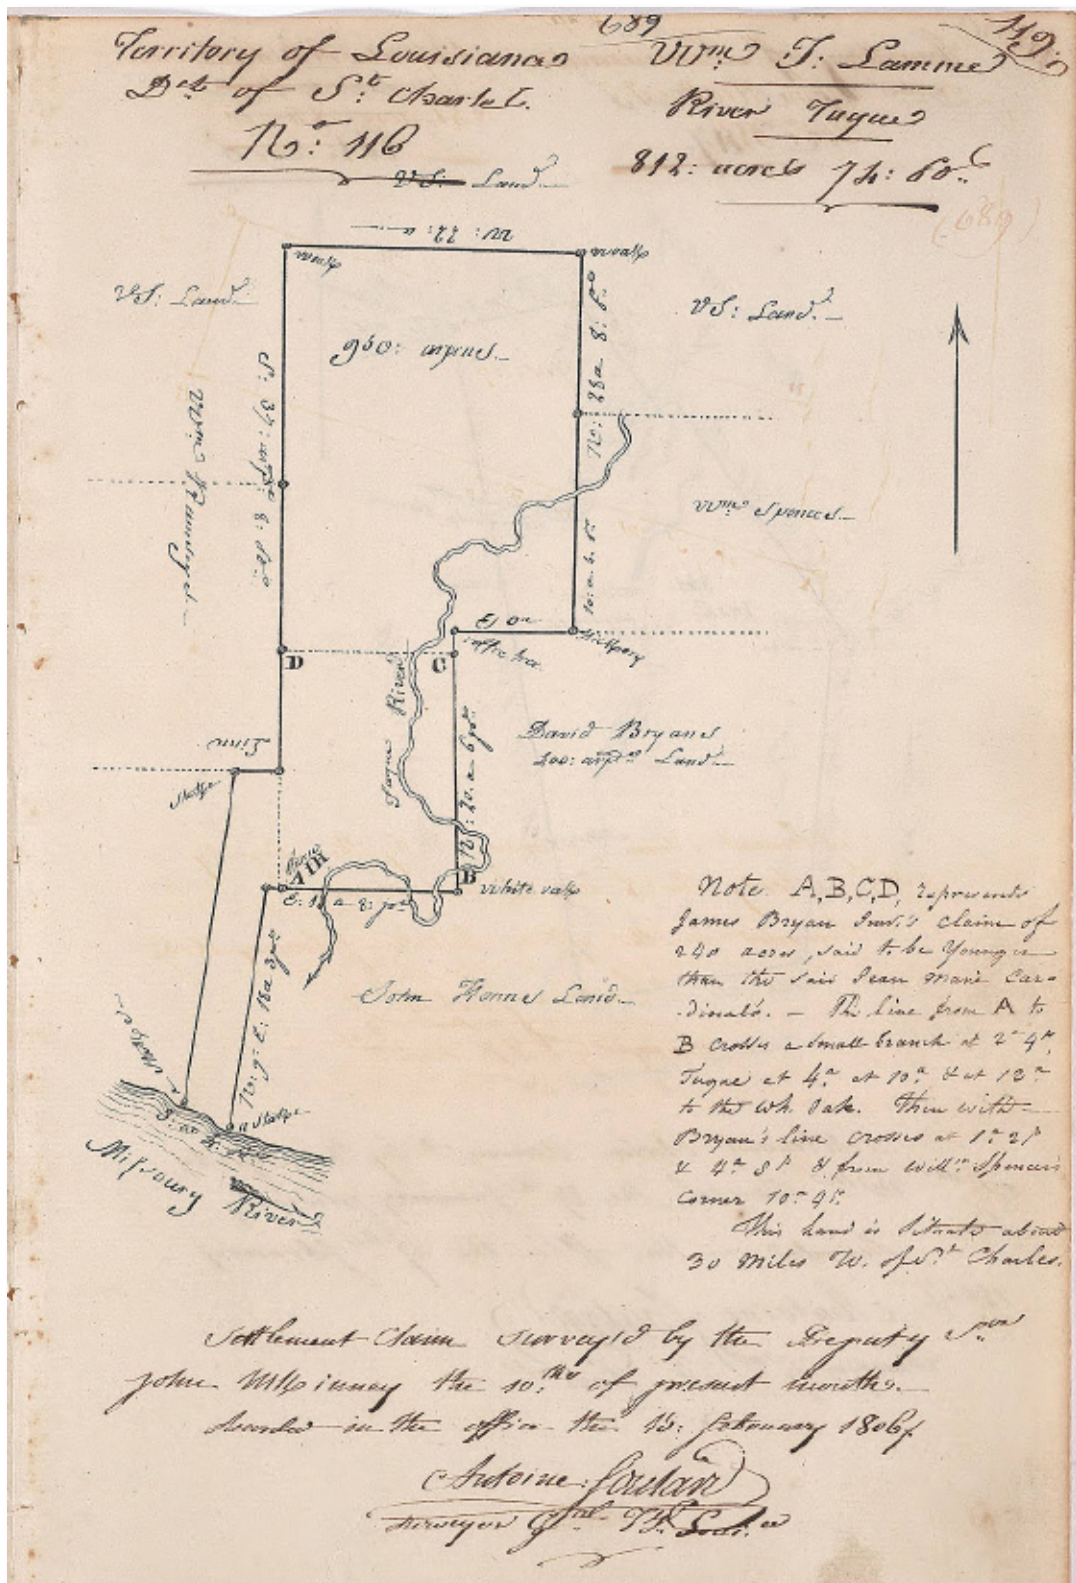 689
119.
Territory of Louisiana
Dct. of St. Charles.
No: 116
Wm. T: Lamme
River Tuque
812: acres 74: 60
US: Land
(689)
W: 22: a
US: Land
960: arpens.
US: Land.
N: 28a 8: po
S: 37: 8:
Wm. Ramseys
Wm. Spences
10: a. 6. po
E
Hickory
D
C
Tuque River
David Bryans
200: arpns Land
N: 20. a 6 po
Linn
Stake
A
B
white oak
E: 8: po
John Hanns Land
N: 9: E: 18a
a Stake
Missoury River
Note. A,B,C,D, represents
James Bryan Junr.'s claim of
240 acres, said to be Younger
than the said Jean Marie Car-
-dinal's. - The line from A to
B crosses a small branch at 2a 4p,
Tuque at 4a at 10a & at 12a
to the Wh. Oak. Then with
Bryan's line crosses at 1a 2p
& 4a 8p & from Willm Spencer's
Corner 10a 9p.
This land is situate about
30 Miles W. of St. Charles.
Settlement Claim survey'd by the Deputy Svor
John McKinney the 10th of present month.
Recorded in the office the 15: february 1806/.
Antoine Soulard
Surveyor Gnl. Ty. Loui.a